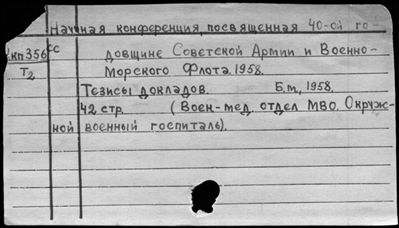 Научная конференция, посвященная 40-ой го-
кп356 сс довщине Советской Армии и Военно-
T2 Морского Флота. 1958.
Тезисы докладов. Б.m., 1958.
42 стр. (Воен-мед. отдел МВО. Окруж-
ной военный госпиталь).